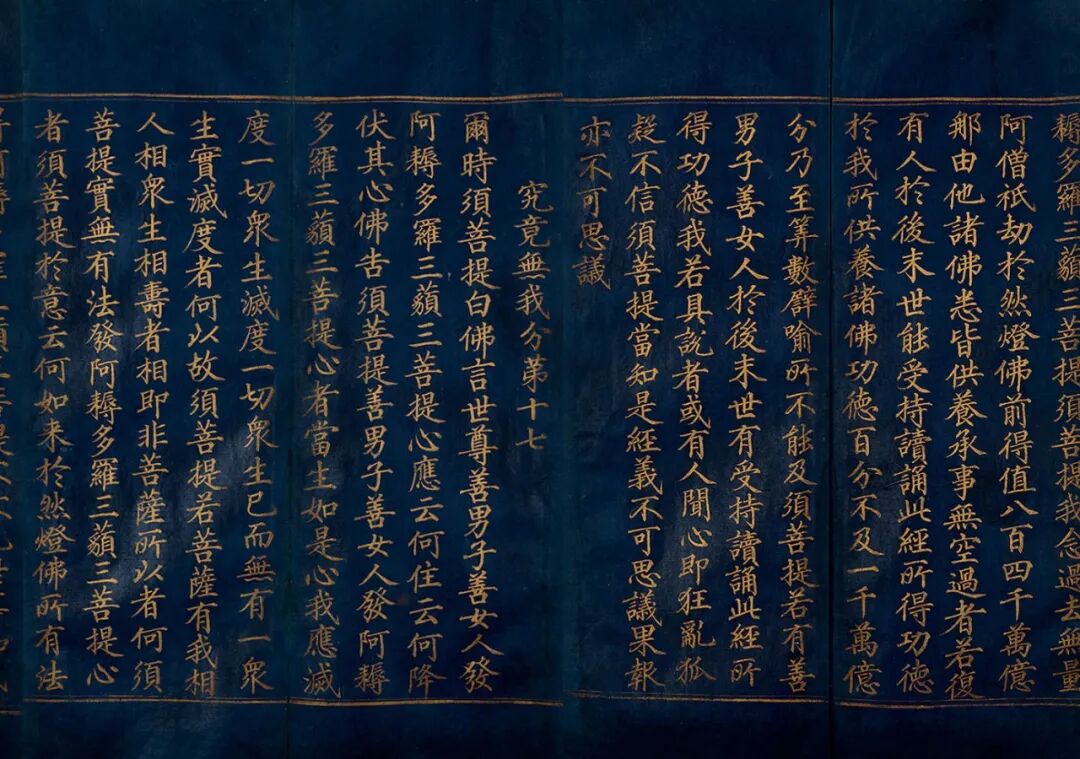 耨多羅三藐三菩提須菩提我念過去無量
阿僧祇劫於然燈佛前得值八百四千萬億
那由他諸佛悉皆供養承事無空過者若復
有人於後末世能受持讀誦此經所得功德
於我所供養諸佛功德百分不及一千萬億
分乃至筭數譬喻所不能及須菩提若有善
男子善女人於後末世有受持讀誦此經所
得功德我若具說者或有人聞心即狂亂狐
疑不信須菩提當知是經義不可思議果報
亦不可思議
究竟無我分第十七
爾時須菩提白佛言世尊善男子善女人發
阿耨多羅三藐三菩提心應云何住云何降
伏其心佛告須菩提善男子善女人發阿耨
多羅三藐三菩提心者當生如是心我應滅
度一切衆生滅度一切衆生已而無有一衆
生實滅度者何以故須菩提若菩薩有我相
人相衆生相壽者相即非菩薩所以者何須
菩提實無有法發阿耨多羅三藐三菩提心
者須菩提於意云何如来於然燈佛所有法